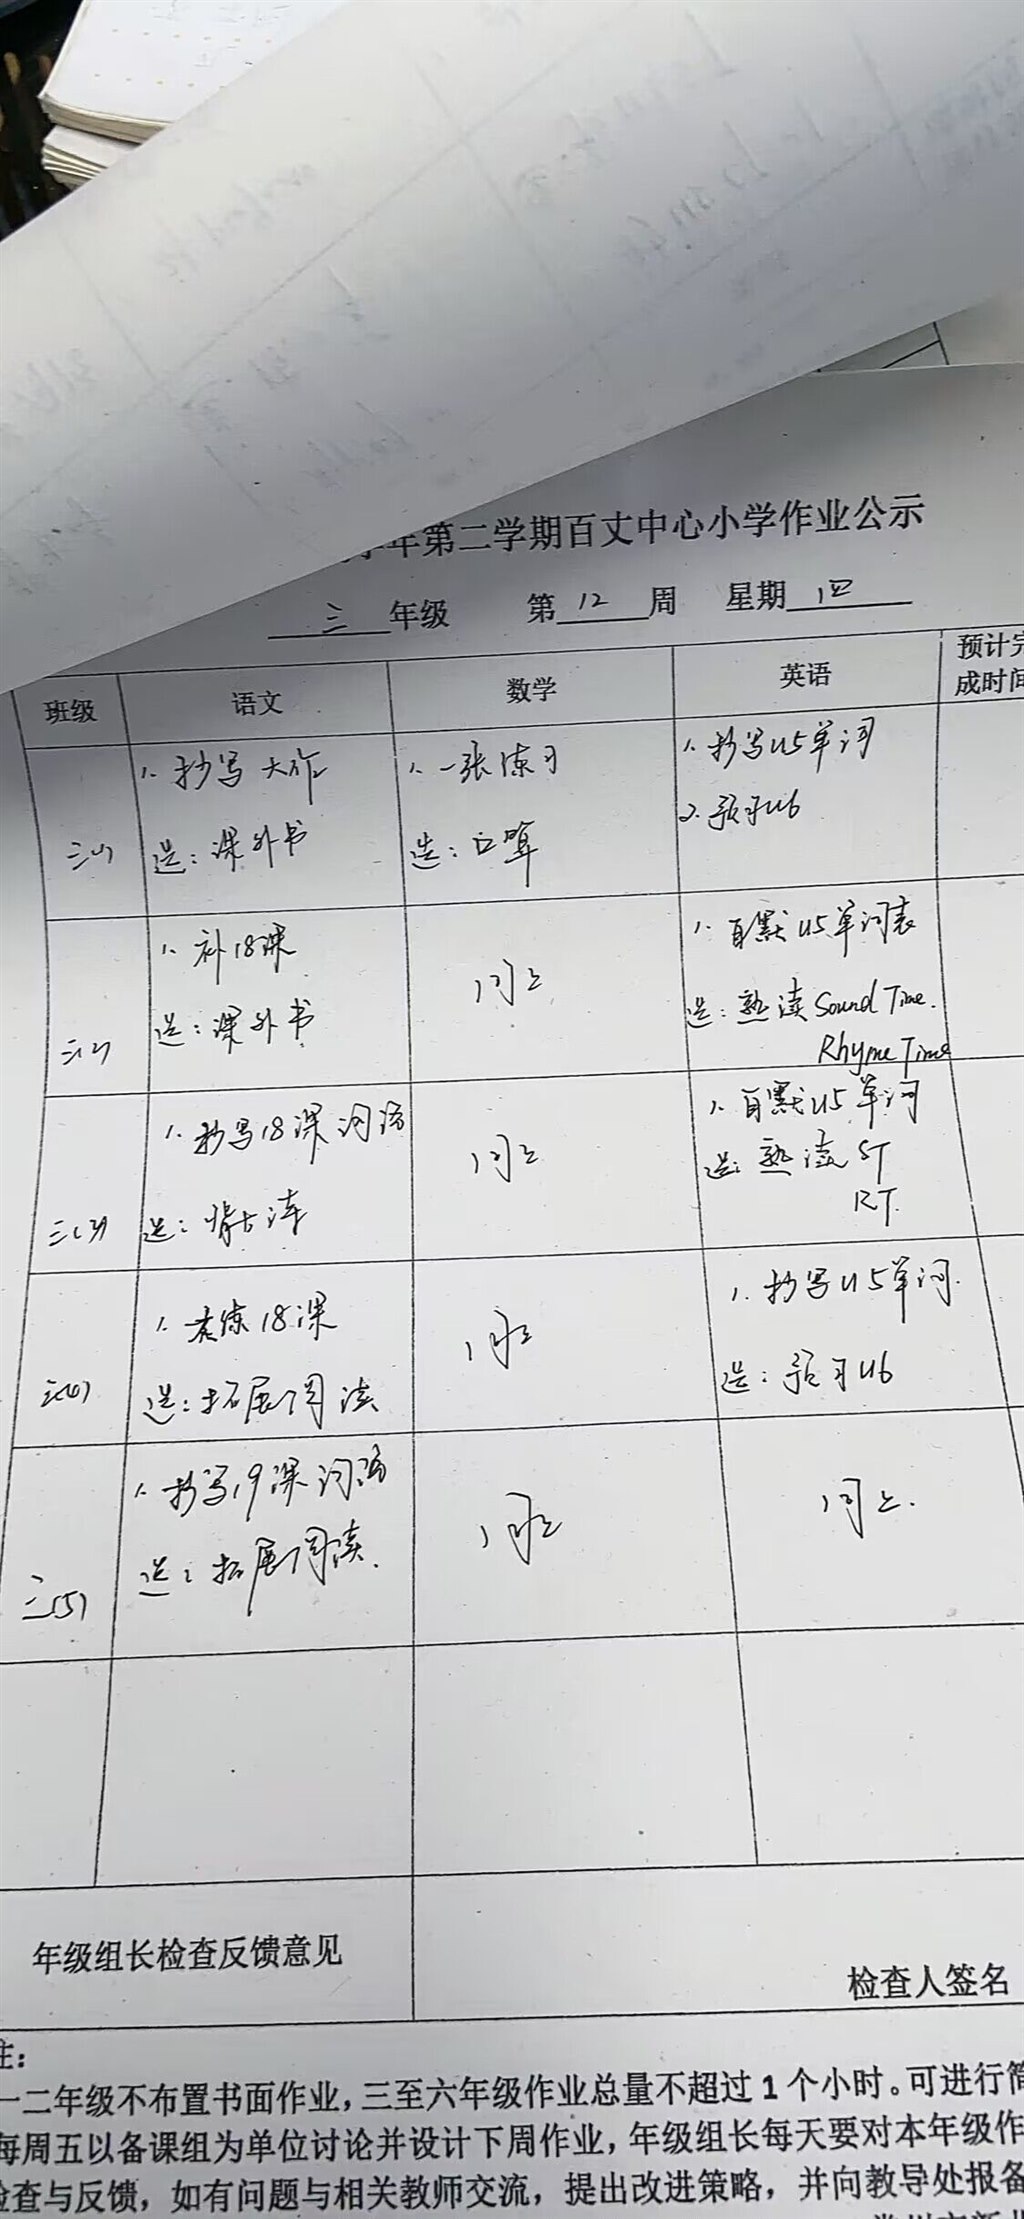 年第二学期百丈中心小学作业公示
三 年级 第 12 周 星期 四
班级 语文 数学 英语 预计完
成时间
三(1)
1. 抄写大作
选:课外书
1. 一张练习
选:口算
1. 抄写U5单词
2. 预习U6
三(2)
1. 补18课
选:课外书
同上
1. 自默U5单词表
选:熟读Sound Time.
Rhyme Time
三(3)
1. 抄写18课词语
选:
同上
1. 自默U5单词
选:熟读ST
RT.
三(4)
1. 18课
选:拓展阅读
同上
1. 抄写U5单词.
选:预习U6
三(5)
1. 抄写19课词语
选:拓展阅读.
同上
同上.
年级组长检查反馈意见
检查人签名
注:
一二年级不布置书面作业,三至六年级作业总量不超过1个小时。可进行简
每周五以备课组为单位讨论并设计下周作业,年级组长每天要对本年级作
检查与反馈,如有问题与相关教师交流,提出改进策略,并向教导处报备